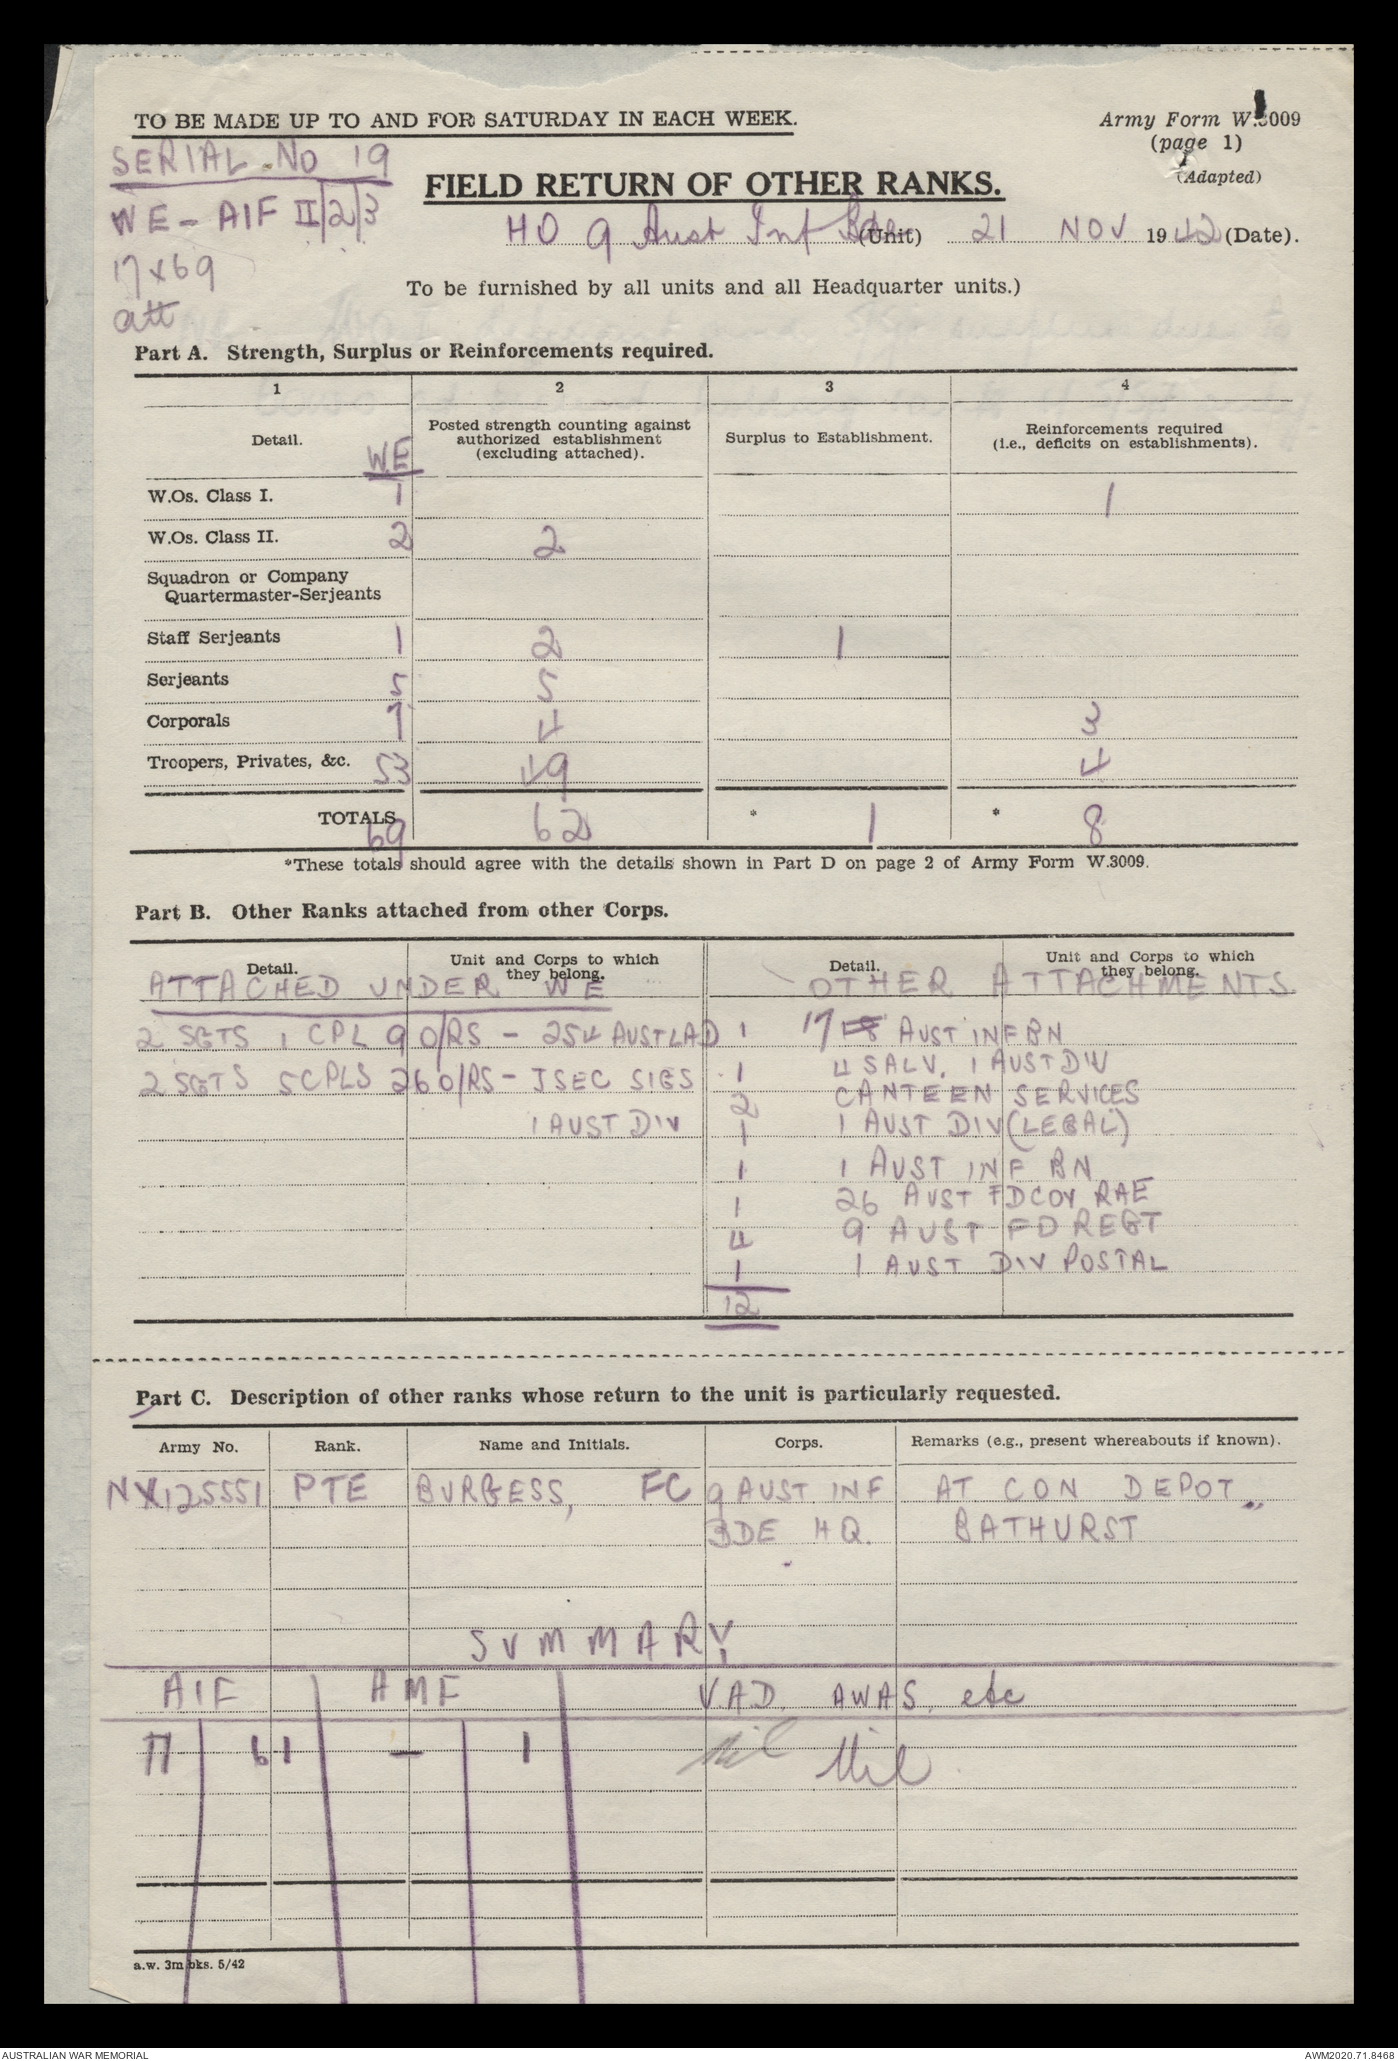 TO BE MADE UP TO AND FOR SATURDAY IN EACH WEEK.
Army Form W.3009
(page 1)
(Adapted)
SERIAL No 19
WE - AIF II/2/3
17 x 69
att
FIELD RETURN OF OTHER RANKS.
HQ 9 Aust Inf Bde (Unit) 21 NOV 1942 (Date).
To be furnished by all units and all Headquarter units.)
Part A. Strength, Surplus or Reinforcements required.
1 2 3 4
Detail. WE Posted strength counting against authorized establishment (excluding attached). Surplus to Establishment. Reinforcements required (i.e., deficits on establishments).
W.Os. Class I. 1 1
W.Os. Class II. 2 2
Squadron or Company
Quartermaster-Serjeants
Staff Serjeants 1 2 1
Serjeants 5 5
Corporals 7 4 3
Troopers, Privates, &c. 53 49 4
TOTALS 69 62 * 1 * 8
*These totals should agree with the details shown in Part D on page 2 of Army Form W.3009.
Part B. Other Ranks attached from other Corps.
Detail. Unit and Corps to which they belong. Detail. Unit and Corps to which they belong.
ATTACHED UNDER WE
2 SGTS 1 CPL 9 O/RS - 254 AUST LAD
2 SGTS 5 CPLS 26 O/RS - J SEC SIGS
1 AUST DIV
OTHER ATTACHMENTS
1 17 AUST INF BN
1 4 SALV. 1 AUST DIV
2 CANTEEN SERVICES
1 1 AUST DIV (LEGAL)
1 1 AUST INF BN
1 26 AUST FD COY RAE
4 9 AUST FD REGT
1 1 AUST DIV POSTAL
12
Part C. Description of other ranks whose return to the unit is particularly requested.
Army No. Rank. Name and Initials. Corps. Remarks (e.g., present whereabouts if known).
NX125551 PTE BURGESS, FC 9 AUST INF AT CON DEPOT
BDE HQ. BATHURST
SUMMARY
AIF AMF VAD, AWAS, etc
17 61 — 1 Nil Nil
a.w. 3m bks. 5/42
AUSTRALIAN WAR MEMORIAL
AWM2020.71.8468